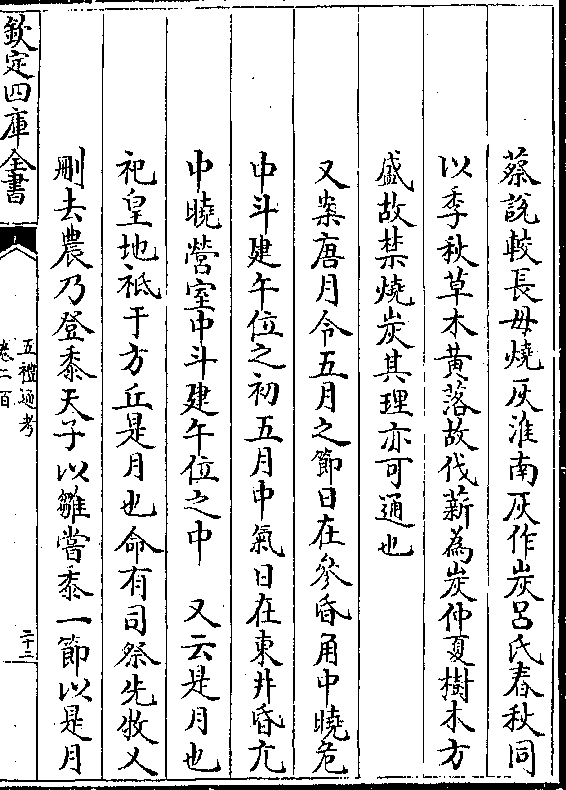 蔡說較長毋燒灰淮南灰作炭呂氏春秋同
以季秋草木黃落故伐薪為炭仲夏樹木方
盛故禁燒炭其理亦可通也
又案唐月令五月之節日在參昏角中曉危
中斗建午位之初五月中氣日在東井昏亢
中曉營室中斗建午位之中　又云是月也
祀皇地祇于方丘是月也命有司祭先牧又
刪去農乃登黍天子以雛嘗黍一節以是月
欽定四庫全書
五禮通考
卷二百
二十二